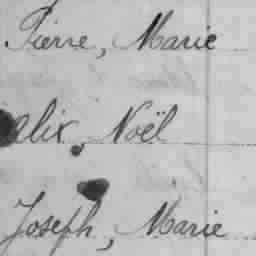 Pierre, Marie
Alix, Noël
Joseph, Marie